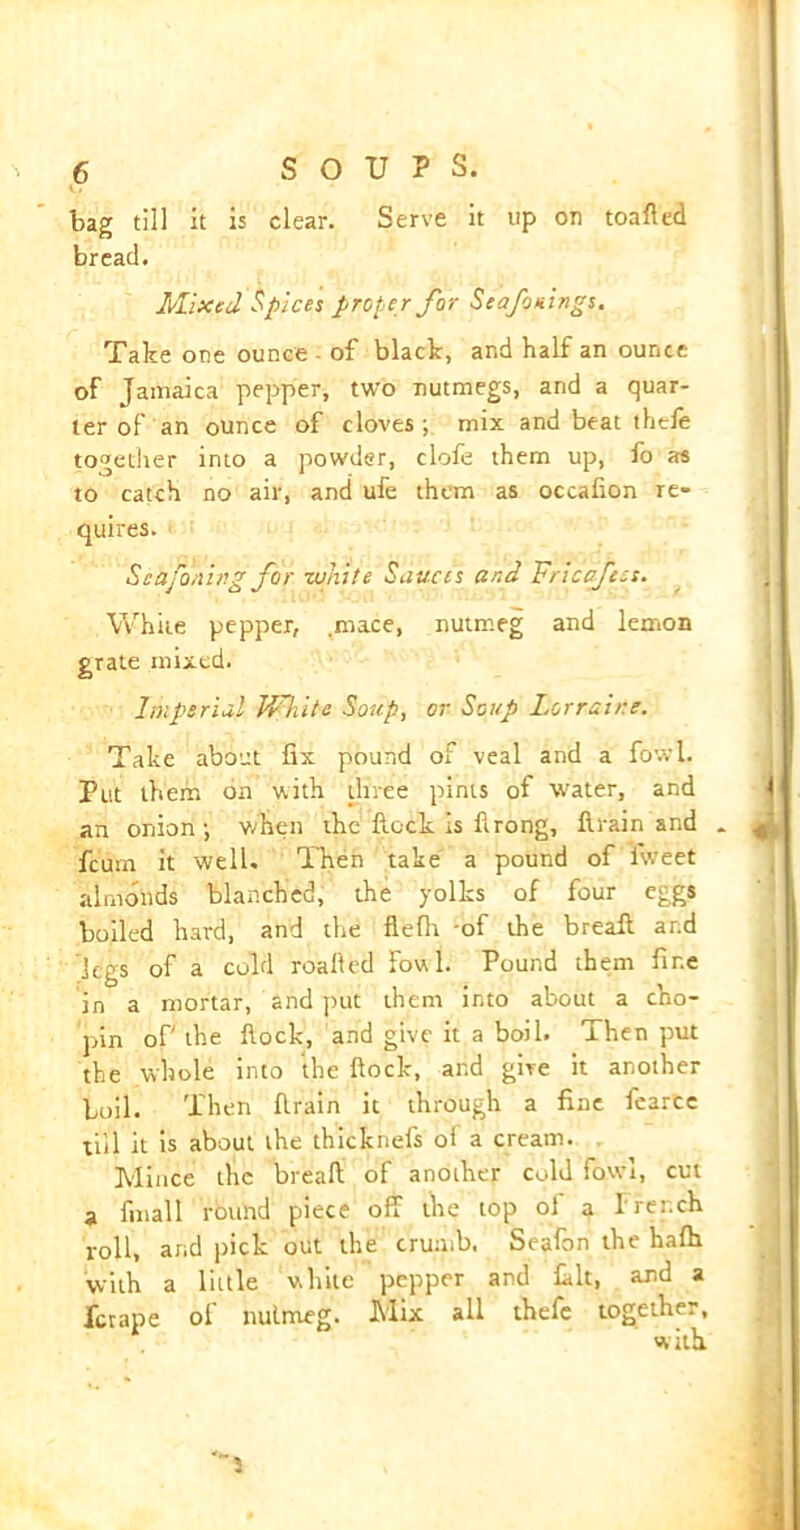 6 SOUPS.
bag till it is clear. Serve it up on toaſted
bread.
Mixed Spices proper for Seaſonings.
Take one ounce of black, and half an ounce
of Jamaica pepper, two nutmegs, and a quar-
ter of an ounce of cloves; mix and beat theſe
together into a powder, cloſe them up, ſo as
to catch no air, and uſe them as occaſion re-
quires.
Seaſoning for white Sauces and Fricaſees.
White pepper, mace, nutmeg and lemon
grate mixed.
Imperial White Soup, or Soup Lorraine.
Take about ſix pound of veal and a fowl.
Put them on with three pints of water, and
an onion; when the ſtock is ſtrong, ſtrain and
ſcum it well. Then take a pound of ſweet
almonds blanched, the yolks of four eggs
boiled hard, and the fleſh of the breaſt and
legs of a cold roaſted fowl. Pound them fine
in a mortar, and put them into about a cho-
pin of the ſtock, and give it a boil. Then put
the whole into the ſtock, and give it another
boil. Then ſtrain it through a fine ſearce
till it is about the thickneſs of a cream.
Mince the breaſt of another cold fowl, cut
a ſmall round piece off the top of a French
roll, and pick out the crumb. Seaſon the haſh
with a little white pepper and ſalt, and a
ſcrape of nutmeg. Mix all theſe together,
with